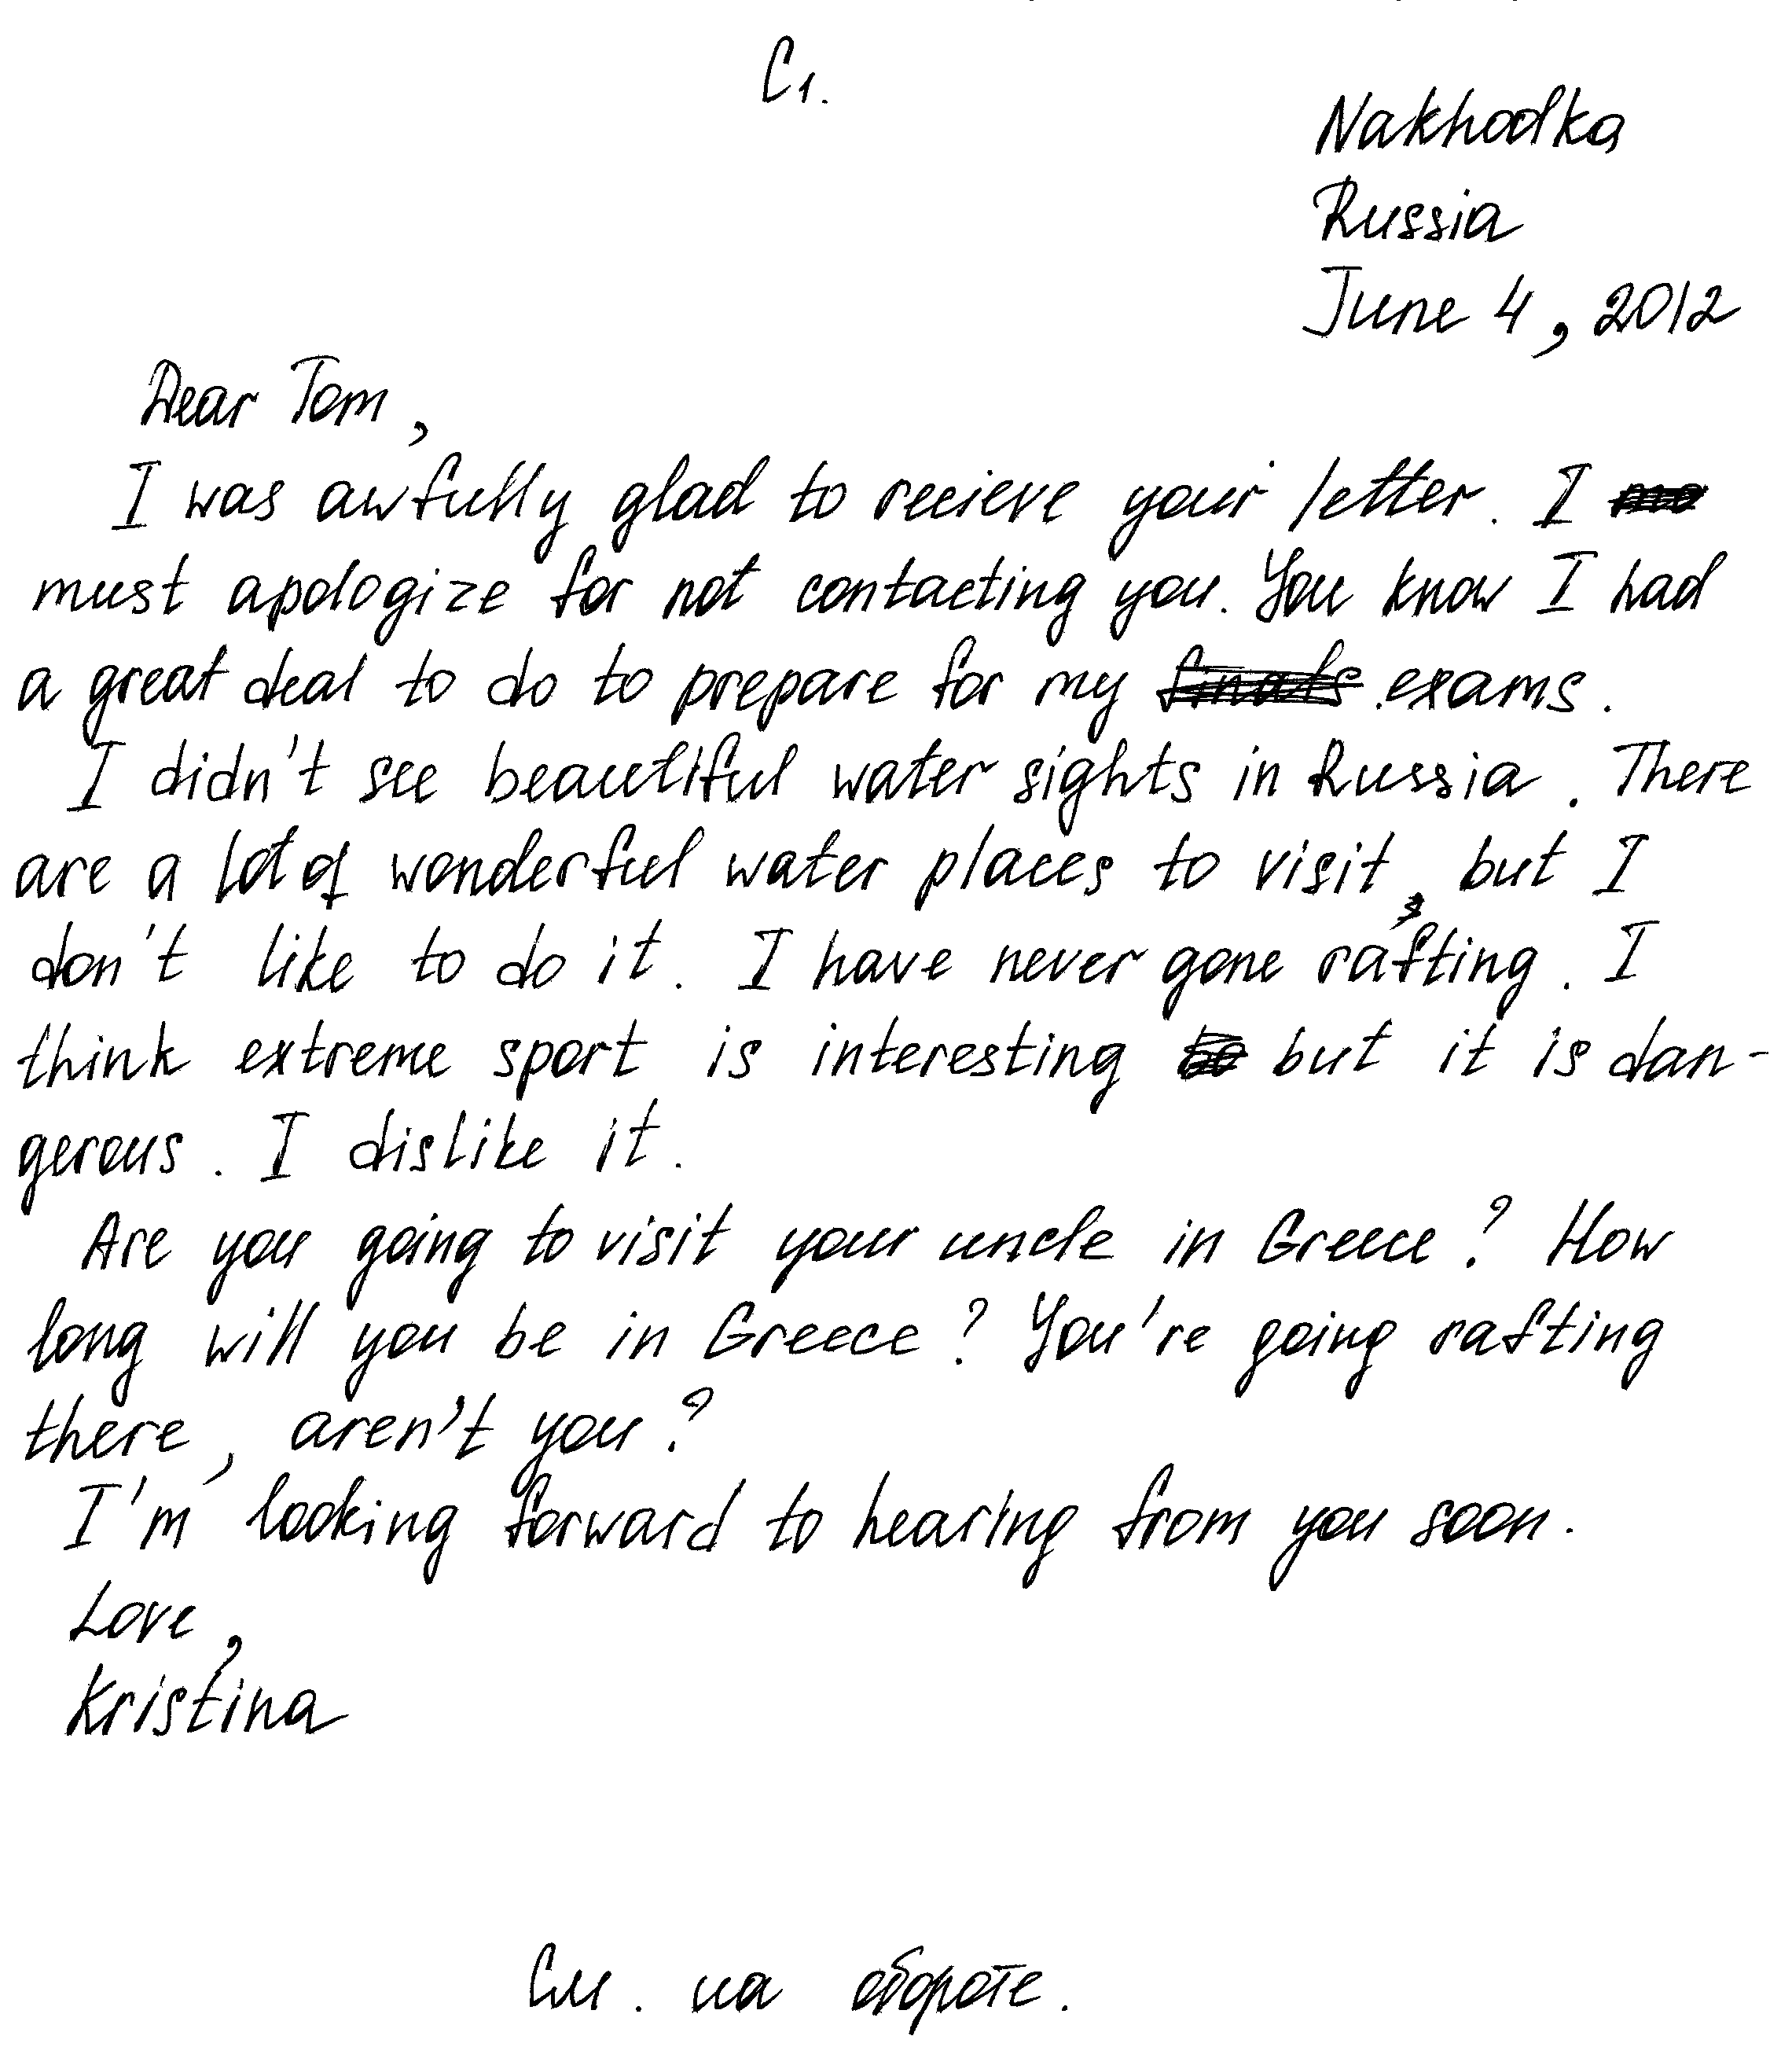 С1.
Nakhodka
Russia
June 4, 2012
Dear Tom,
I was awfully glad to recieve your letter. I
must apologize for not contacting you. You know I had
a great deal to do to prepare for my finals exams.
I didn't see beautiful water sights in Russia. There
are a lot of wonderful water places to visit, but I
don't like to do it. I have never gone rafting. I
think extreme sport is interesting but it is dan-
gerous. I dislike it.
Are you going to visit your uncle in Greece? How
long will you be in Greece? You're going rafting
there, aren't you?
I'm looking forward to hearing from you soon.
Love,
Kristina
См. на обороте.